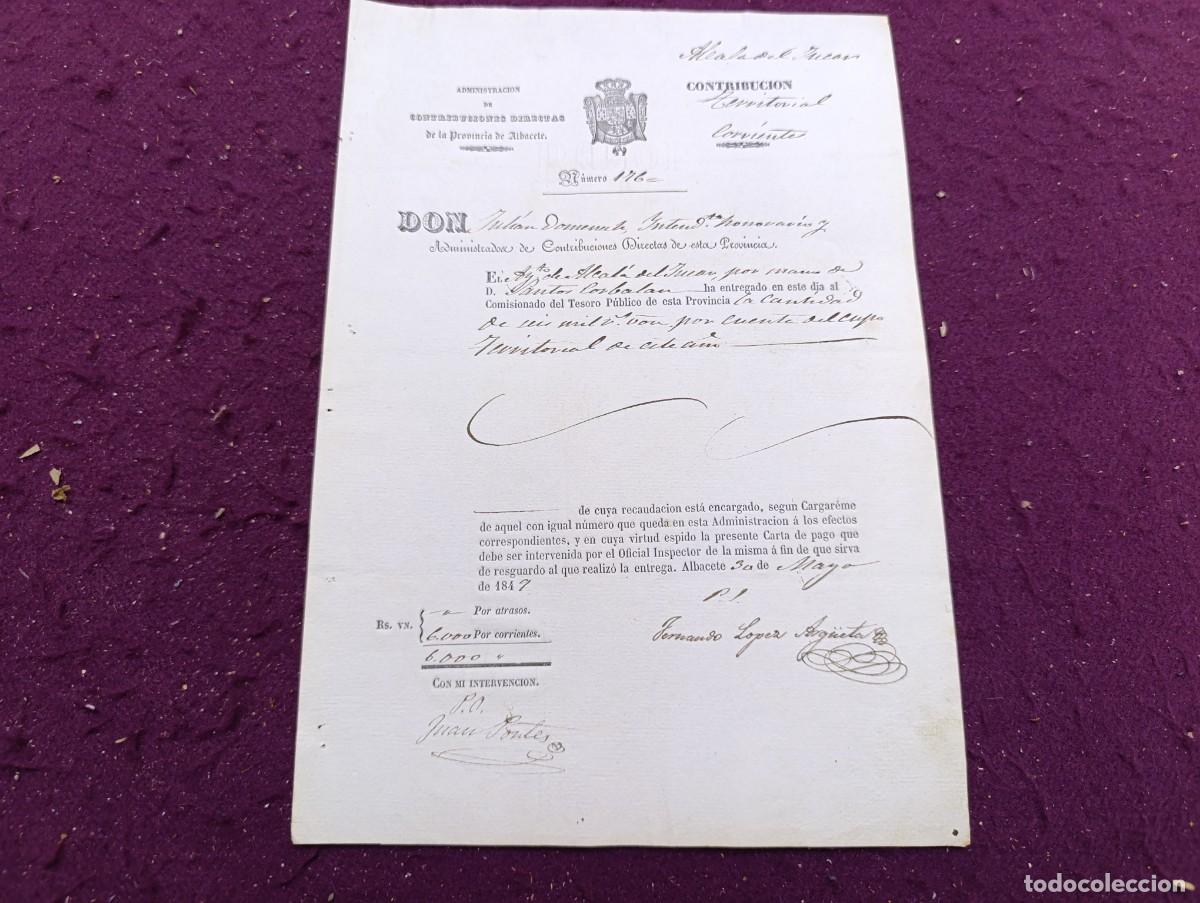 Alcala del Jucar
ADMINISTRACION
DE
CONTRIBUCIONES DIRECTAS
de la Provincia de Albacete.
CONTRIBUCION
Territorial
Corrientes
Número 176
DON Julián Domenech, Intend.te honorario y
Administrador de Contribuciones Directas de esta Provincia.
EL Ay.to de Alcalá del Jucar por mano de
D. Santos Corbalan ha entregado en este dia al
Comisionado del Tesoro Público de esta Provincia la cantidad
de seis mil r.s von por cuenta del cupo
Territorial de este año
de cuya recaudacion está encargado, segun Cargaréme
de aquel con igual número que queda en esta Administracion á los efectos
correspondientes, y en cuya virtud espido la presente Carta de pago que
debe ser intervenida por el Oficial Inspector de la misma á fin de que sirva
de resguardo al que realizó la entrega. Albacete 30 de Mayo
de 1847
P. I.
Por atrasos.
Rs. VN. 6.000 Por corrientes.
6.000 "
Fernando Lopez Argüeta
CON MI INTERVENCION.
P. O.
Juan Pontes
todocoleccion